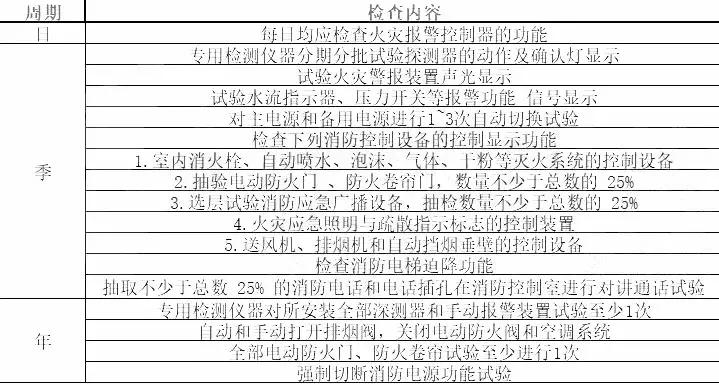 周期 检查内容
日 每日均应检查火灾报警控制器的功能
季 专用检测仪器分期分批试验探测器的动作及确认灯显示
试验火灾警报装置声光显示
试验水流指示器、压力开关等报警功能 信号显示
对主电源和备用电源进行1~3次自动切换试验
检查下列消防控制设备的控制显示功能
1.室内消火栓、自动喷水、泡沫、气体、干粉等灭火系统的控制设备
2.抽验电动防火门 、防火卷帘门，数量不少于总数的 25%
3.选层试验消防应急广播设备，抽检数量不少于总数的 25%
4.火灾应急照明与疏散指示标志的控制装置
5.送风机、排烟机和自动挡烟垂壁的控制设备
检查消防电梯迫降功能
抽取不少于总数 25% 的消防电话和电话插孔在消防控制室进行对讲通话试验
年 专用检测仪器对所安装全部深测器和手动报警装置试验至少1次
自动和手动打开排烟阀，关闭电动防火阀和空调系统
全部电动防火门、防火卷帘试验至少进行1次
强制切断消防电源功能试验